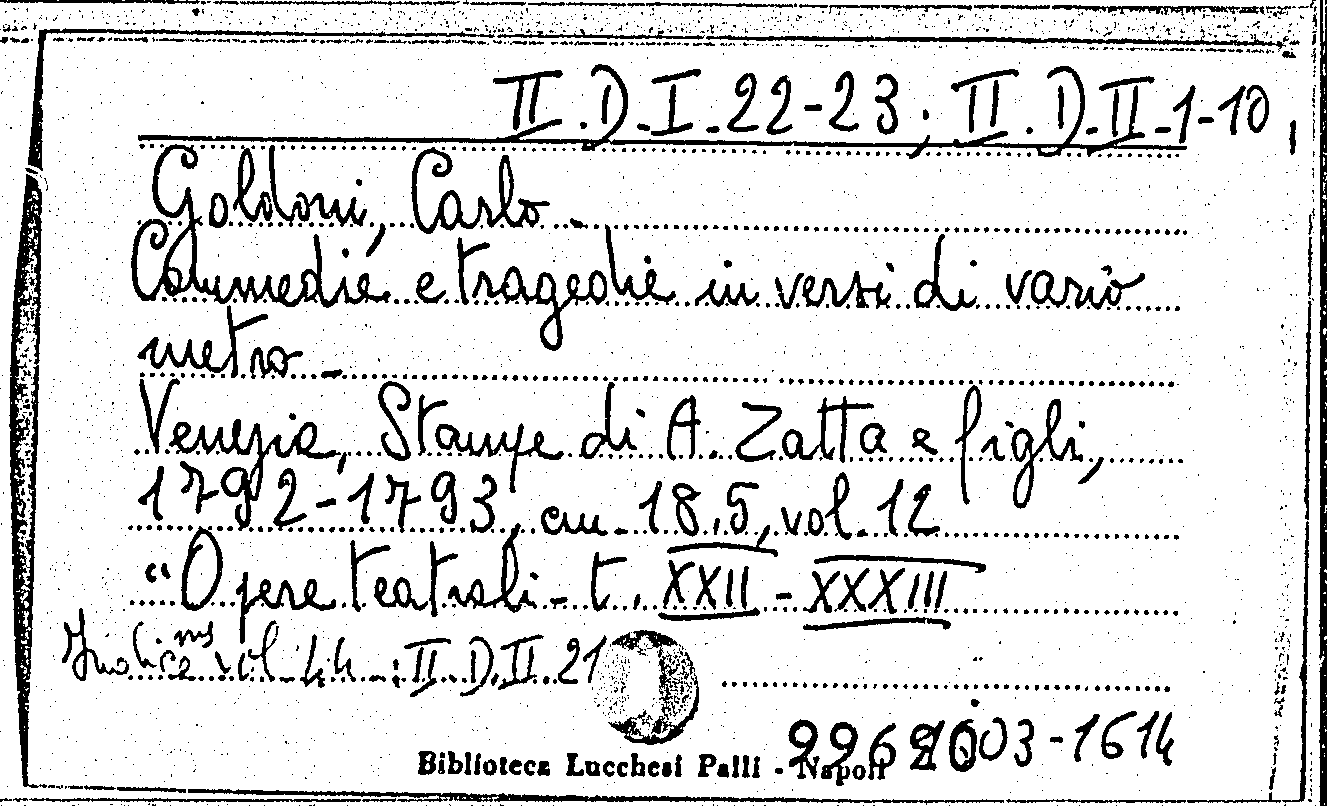 II.D.I.22-23; II.D.II.1-10,
Goldoni, Carlo.
Commedie e tragedie in versi di vario
metro.-
Venezia, Stampe di A. Zatta e figli,
1792-1793, cm. 18,5, vol. 12
"Opere teatrali - t. XXII - XXXIII
Indice ms vol. 44.: II.D.II.21
03-1614
Biblioteca Lucchesi Palli - Napoli